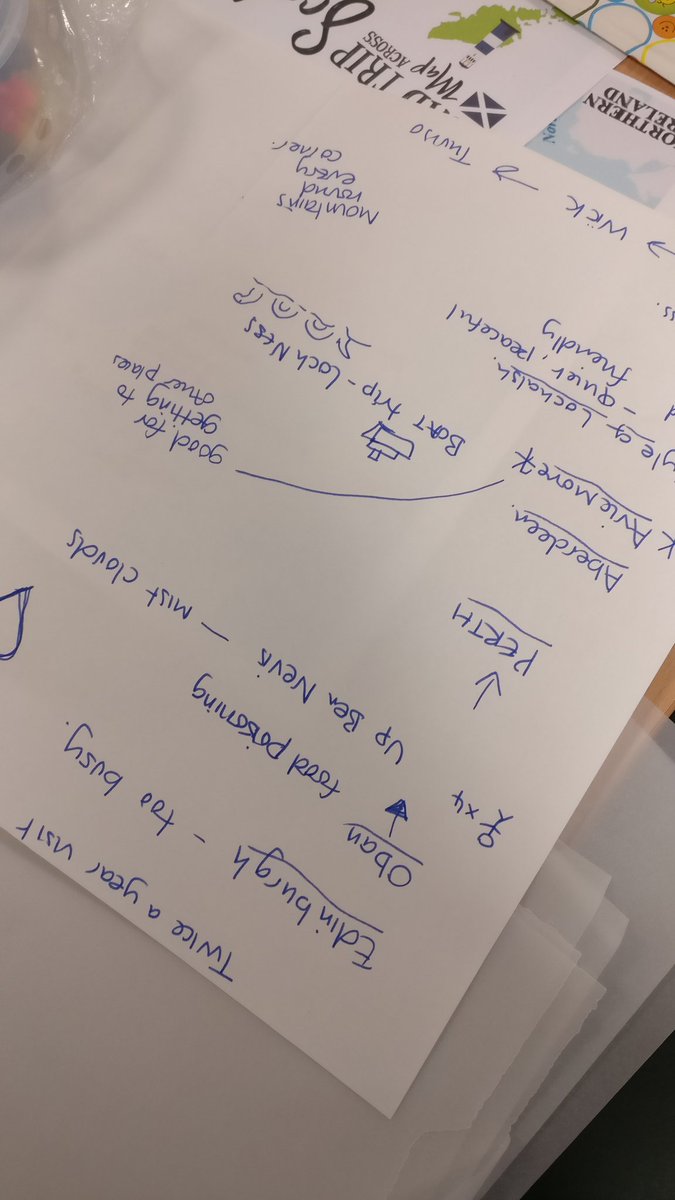 Twice a year visit
Edinburgh - too busy.
Oban
food poisoning
£x4
Up Ben Nevis - mist clouds
PERTH
Aberdeen.
Aviemore
good for
getting to
other places
Boat trip - Loch Ness
Lochalsh.
- quiet, peaceful
friendly
Mountains
round
every
corner.
→ Wick → Thurso
TRIP
Map ACROSS
NORTHERN
IRELAND